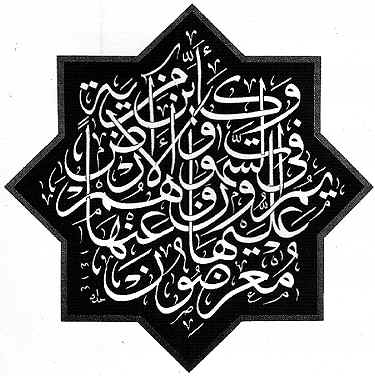 وَكَأَيِّن مِّنْ آيَةٍ
فِي السَّمَاوَاتِ وَالْأَرْضِ
يَمُرُّونَ
عَلَيْهَا وَهُمْ عَنْهَا
مُعْرِضُونَ